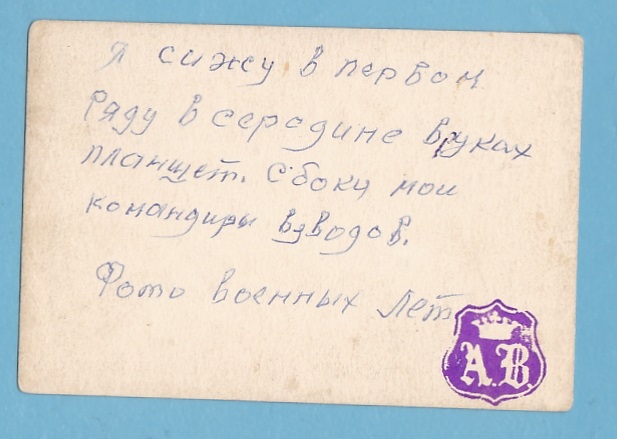 Я сижу в первом
ряду в середине в руках
планшет. Сбоку мои
командиры взводов.
Фото военных лет
А.В.